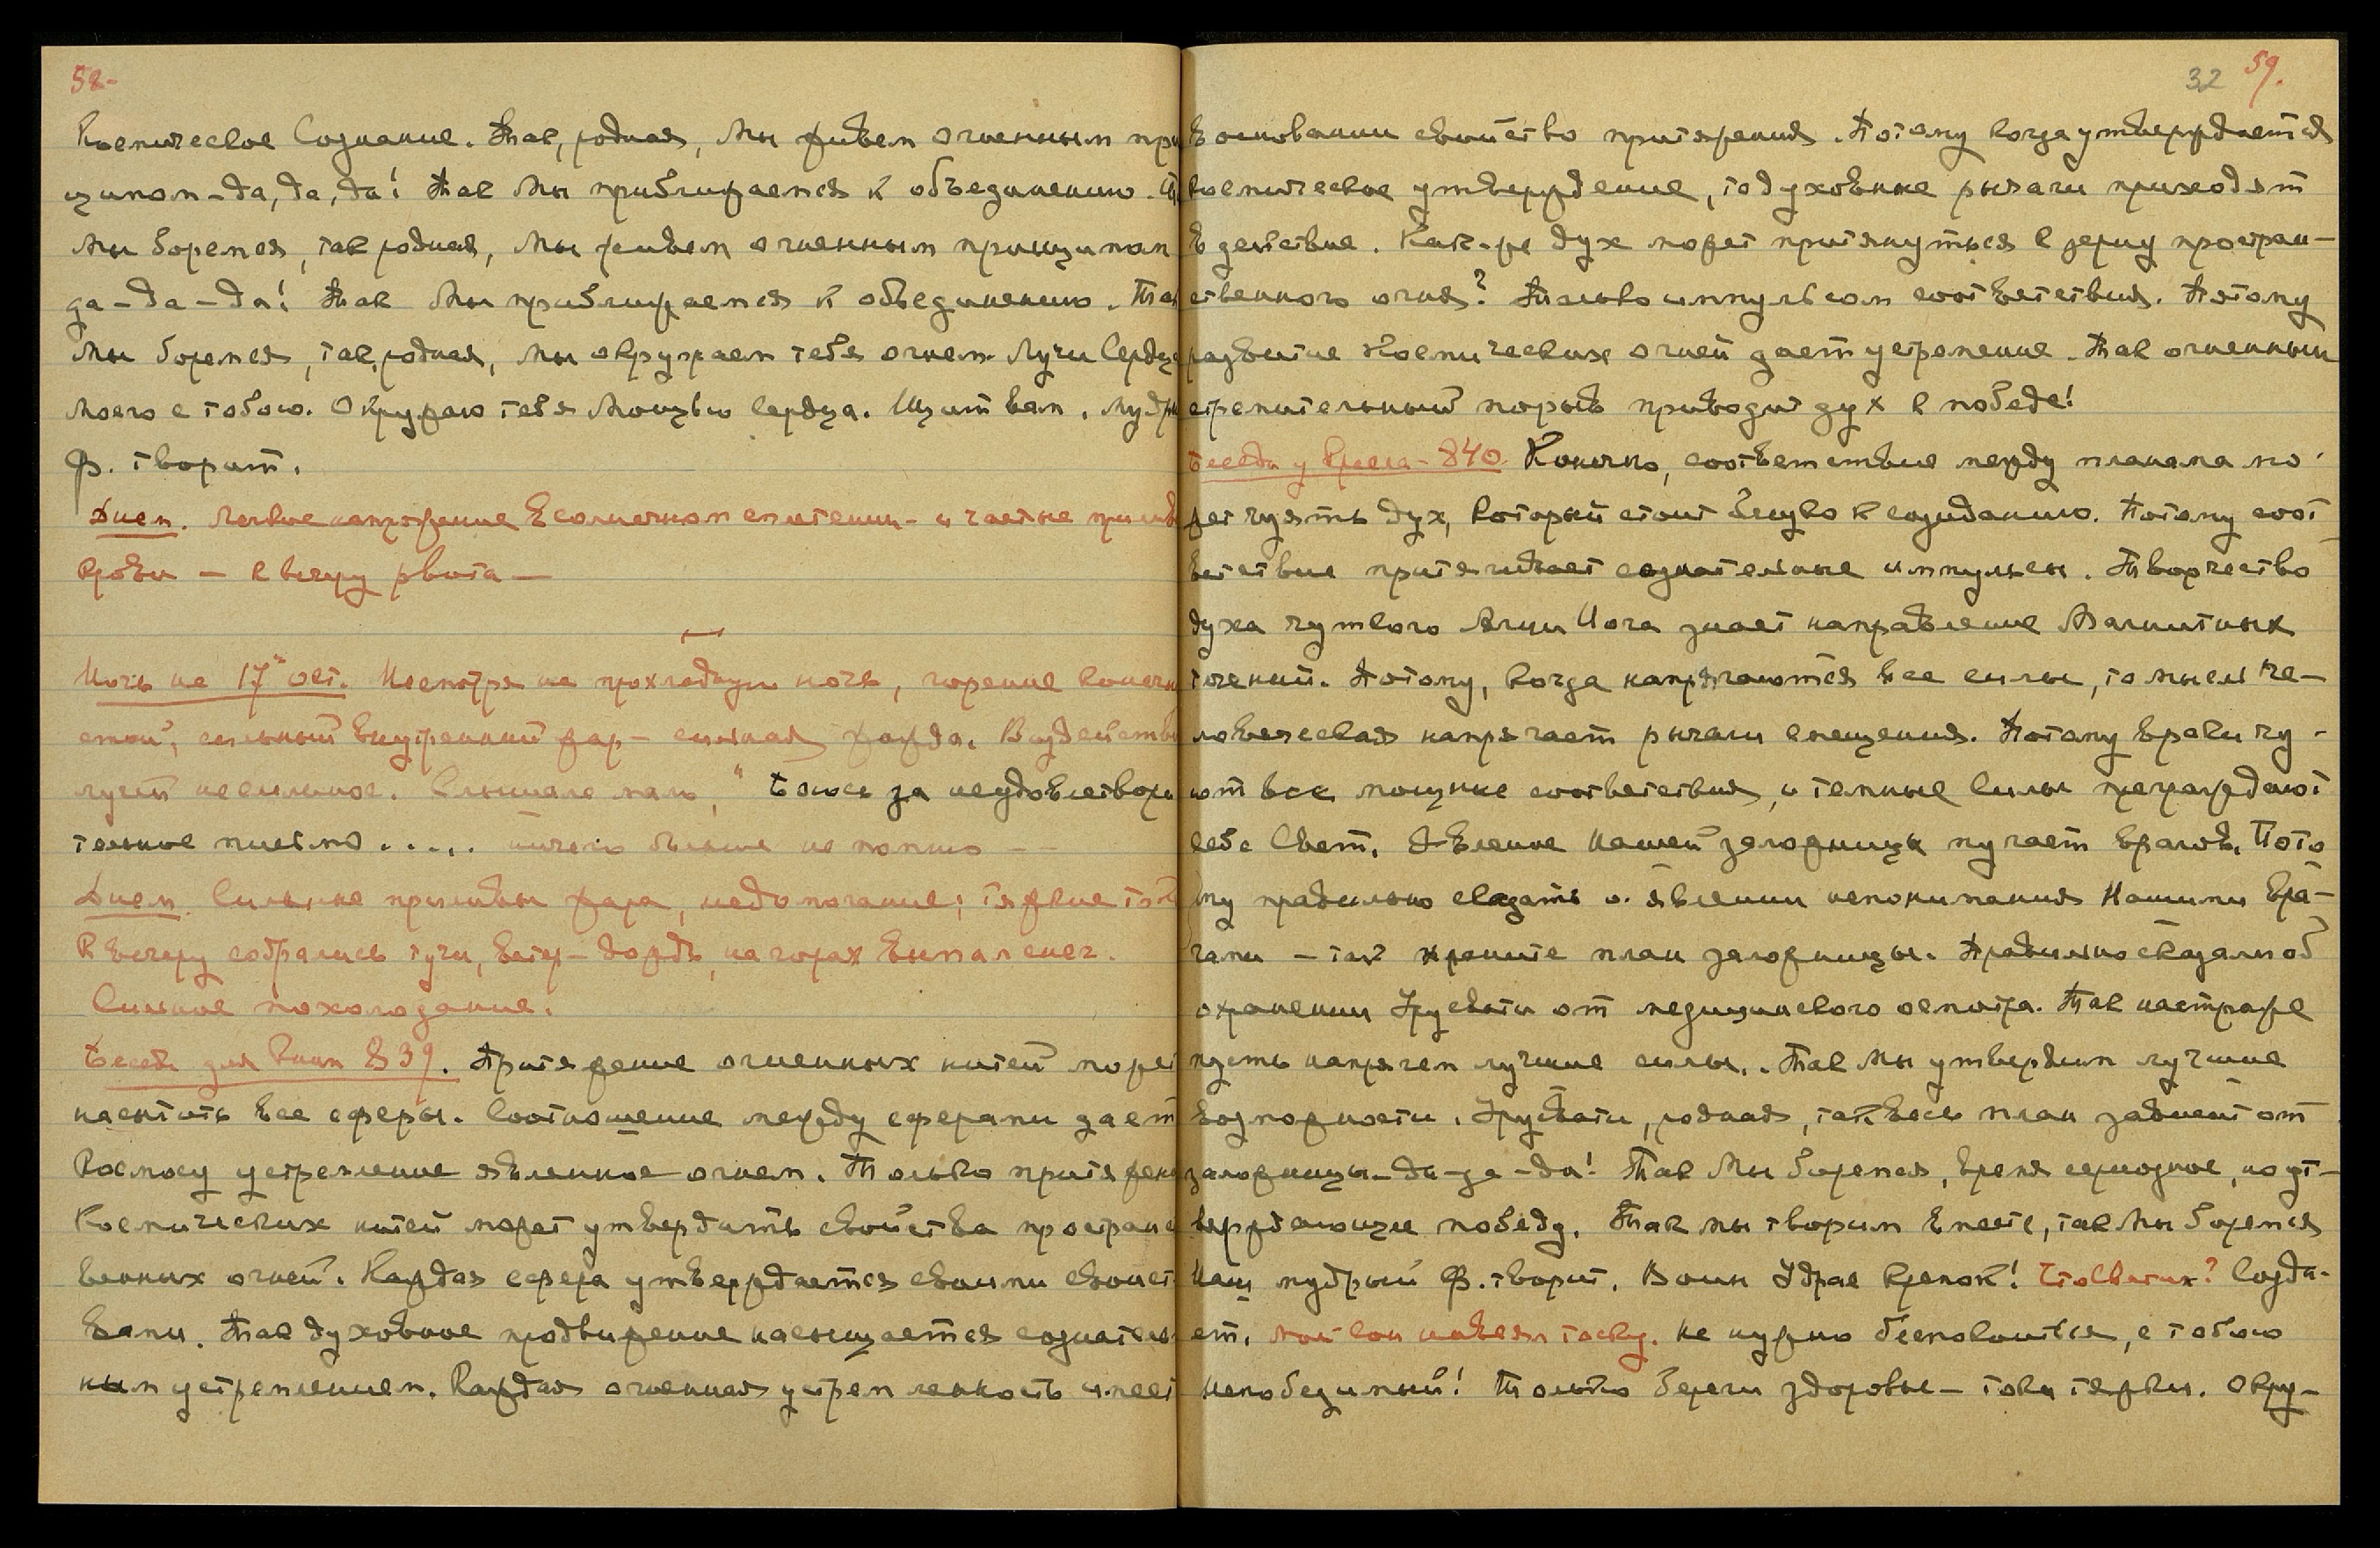 58-
Космическое Сознание. Так, родная, Мы живем огненным при
ципом - да, да, да! Так Мы приближаемся к объединению.
Мы боремся, так родная, Мы живем огненным принципом
да - да - да! Так Мы приближаемся к объединению. Так
Мы боремся, так, родная, мы окружаем тебя огнем. Лучи Сердца
Моего с тобою. Окружаю тебя Мощью Сердца. Щит вам. Мудрый
Ф. творит.
Днем. Легкое напряжение в солнечном сплетении - и частые приливы
крови - к вечеру рвота -
Ночь на 17ое окт. Несмотря на прохладную ночь, горение конечно
стей, сильный внутренний жар - сильная жажда. Воздействие
лучей несильное. Слышала мало, " Боюсь за неудовлетвори
тельное письмо . . . . . ничего больше не помню - -
Днем. Сильные приливы жара, недомогание; тяжкие токи
К вечеру собрались тучи, ветер - дождь, на горах выпал снег.
Сильное похолодание.
Беседа для Книги 839. Притяжение огненных нитей может
насытить все сферы. Соотношение между сферами дает
Космосу устремление явленное огнем. Только притяжение
Космических нитей может утвердить свойства пространс
венных огней. Каждая сфера утверждается своими свойст
вами. Так духовное продвижение насыщается сознатель
ным устремлением. Каждая огненная устремленность имеет
32 59.
в основании свойство притяжения. Потому когда утверждается
космическое утверждение, то духовные рычаги приходят
в действие. Как-же дух может притянуться к зерну простран-
ственного огня? Только импульсом соответствия. Потому
развитие Космических огней дает устремление. Так огненный
стремительный порыв приводит дух к победе!
Беседа у Кресла - 840 Конечно, соответствие между планами мо-
жет чуять дух, который стоит близко к созиданию. Потому соот
ветствие притягивает сознательные импульсы. Творчество
духа чуткого Агни Йога знает направление Магнитных
течений. Потому, когда напрягаются все силы, то мысль че-
ловеческая напрягает рычаги смещения. Потому враги чу-
ют все мощные соответствия, и темные силы преграждают
себе Свет. Явление Нашей заложницы пугает врагов. Пото
му правильно сказать о явлении непонимания Нашими Вра-
гами - так храните план заложницы. Правильно сказали об
охранении Урусвати от медицинского осмотра. Так на страже
пусть напряжем лучшие силы. Так Мы утвердим лучшие
возможности. Урусвати, родная, так весь план зависит от
заложницы - да - да - да! Так Мы боремся, время серьозное, но ут-
верждающее победу. Так мы творим вместе, так Мы боремся
Наш мудрый Ф. творит. Воин Удрая крепок! Что Светик? Созда-
ет. Мой сон навеял тоску. Не нужно беспокоиться, с тобою
Непобедимый! Только береги здоровье - токи тяжки. Окру-